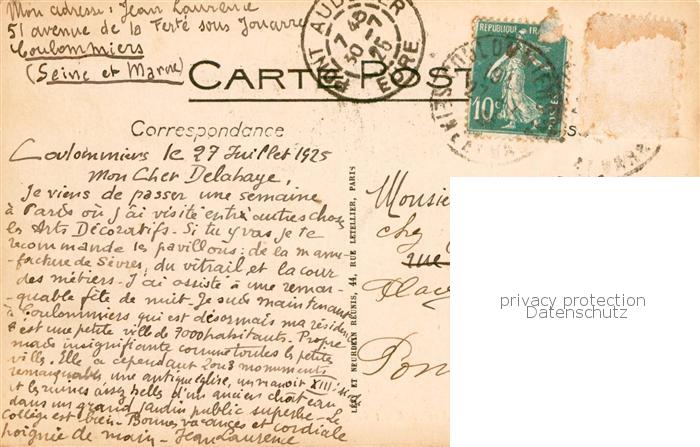 Mon adresse : Jean Laurence
51 avenue de la Ferté sous Jouarre
Coulommiers
(Seine et Marne)
PONT AUDEMER
7 40
30 - 7
25
EURE
CARTE POST
10c
POSTES
COULOMMIERS
SEINE
Correspondance
Coulommiers le 27 Juillet 1925
Mon Cher Delahaye,
Je viens de passer une semaine
à Paris où j'ai visité entr'autres choses
les Arts Décoratifs - Si tu y vas je te
recommande les pavillons : de la manu-
facture de Sèvres, du vitrail, et la cour
des métiers - J'ai assisté à une remar-
quable fête de nuit - Je suis maintenant
à Coulommiers qui est désormais ma résidence
C'est une petite ville de 7000 habitants - Propre
mais insignifiante comme toutes les petites
villes. Elle a cependant 2 ou 3 monuments
remarquables une antique église, un manoir XIII
et les ruines assez belles d'un ancien chateau
dans un grand jardin public superbe - Le
Collège est bien - Bonnes vacances et cordiale
poignée de main - Jean Laurence
LÉVY ET NEURDEIN RÉUNIS, 44, RUE LETELLIER, PARIS
Monsie
chez
rue
Place
Pon
privacy protection
Datenschutz